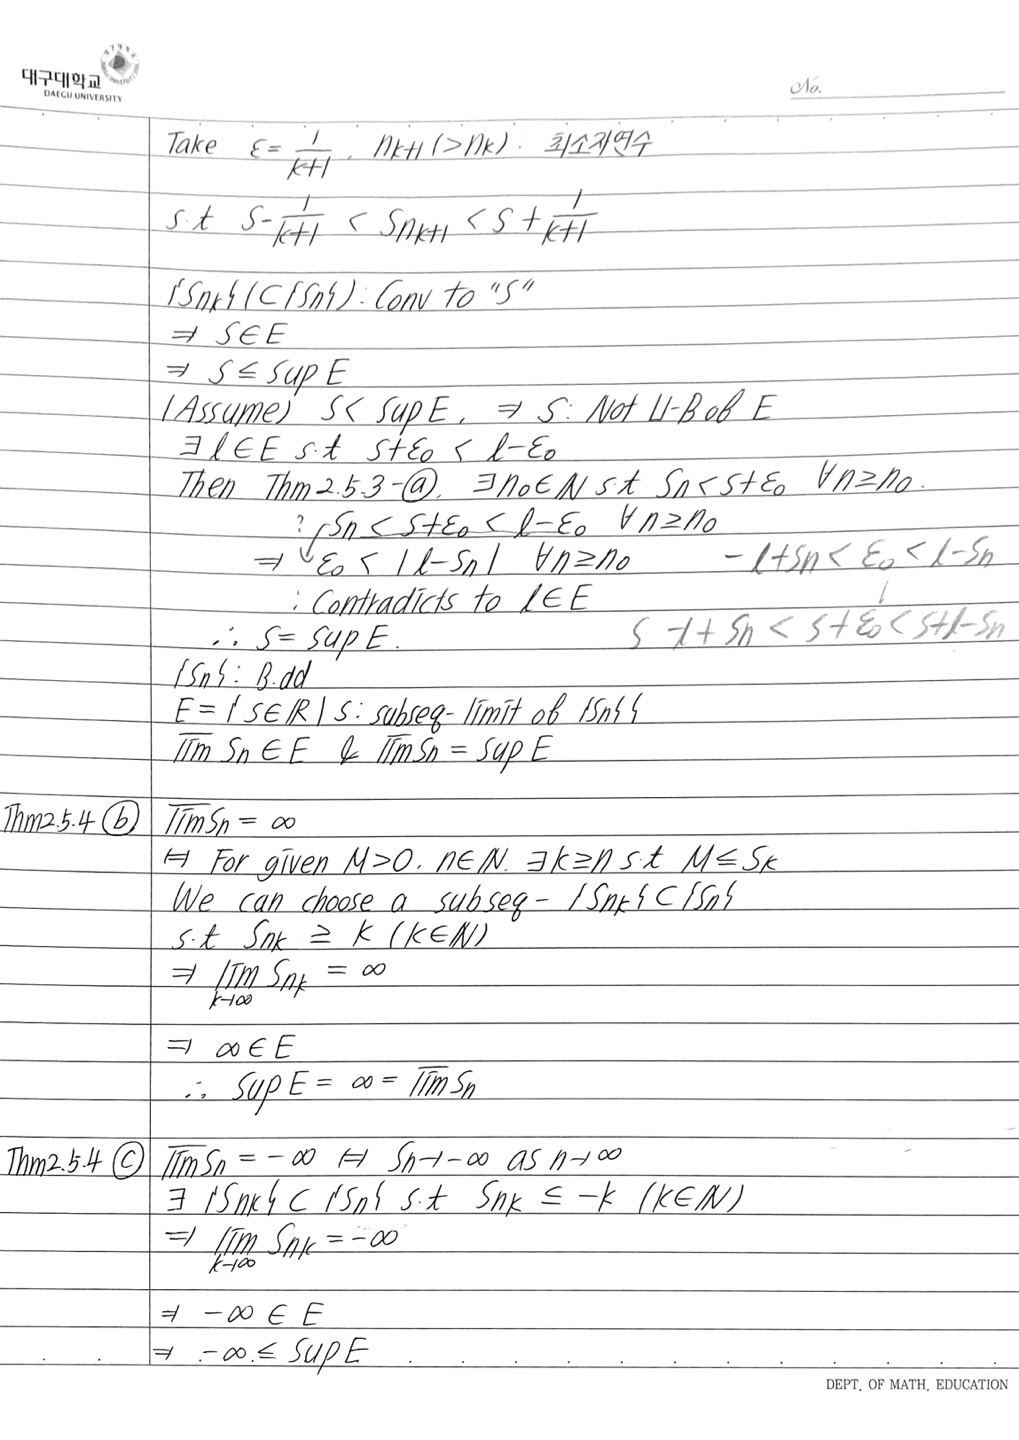 대구대학교
DAEGU UNIVERSITY
No.
Take ε = 1/(k+1), n_{k+1} (> n_k) : 최소자연수
s.t S - 1/(k+1) < S_{n_{k+1}} < S + 1/(k+1)
{S_{n_k}} (⊂ {S_n}) : Conv to "S"
⇒ S ∈ E
⇒ S ≤ sup E
(Assume) S < sup E, ⇒ S : Not U-B of E
∃ l ∈ E s.t S+ε₀ < l-ε₀
Then Thm 2.5.3-ⓐ, ∃ n₀ ∈ N s.t S_n < S+ε₀ ∀n ≥ n₀.
? S_n < S+ε₀ < l-ε₀ ∀n ≥ n₀
⇒ ε₀ < |l-S_n| ∀n ≥ n₀ -l+S_n < ε₀ < l-S_n
: Contradicts to l ∈ E
∴ S = sup E. S-l+S_n < S+ε₀ < S+l-S_n
{S_n} : B.dd
E = { S ∈ R | S : subseq-limit of {S_n} }
l̅i̅m̅ S_n ∈ E & l̅i̅m̅ S_n = sup E
Thm 2.5.4 ⓑ l̅i̅m̅ S_n = ∞
⇔ For given M > 0, n ∈ N, ∃ k ≥ n s.t M ≤ S_k
We can choose a subseq- {S_{n_k}} ⊂ {S_n}
s.t S_{n_k} ≥ k (k ∈ N)
⇒ lim_{k→∞} S_{n_k} = ∞
⇒ ∞ ∈ E
∴ sup E = ∞ = l̅i̅m̅ S_n
Thm 2.5.4 ⓒ l̅i̅m̅ S_n = -∞ ⇔ S_n → -∞ as n → ∞
∃ {S_{n_k}} ⊂ {S_n} s.t S_{n_k} ≤ -k (k ∈ N)
⇒ lim_{k→∞} S_{n_k} = -∞
⇒ -∞ ∈ E
⇒ -∞ ≤ sup E
DEPT. OF MATH. EDUCATION